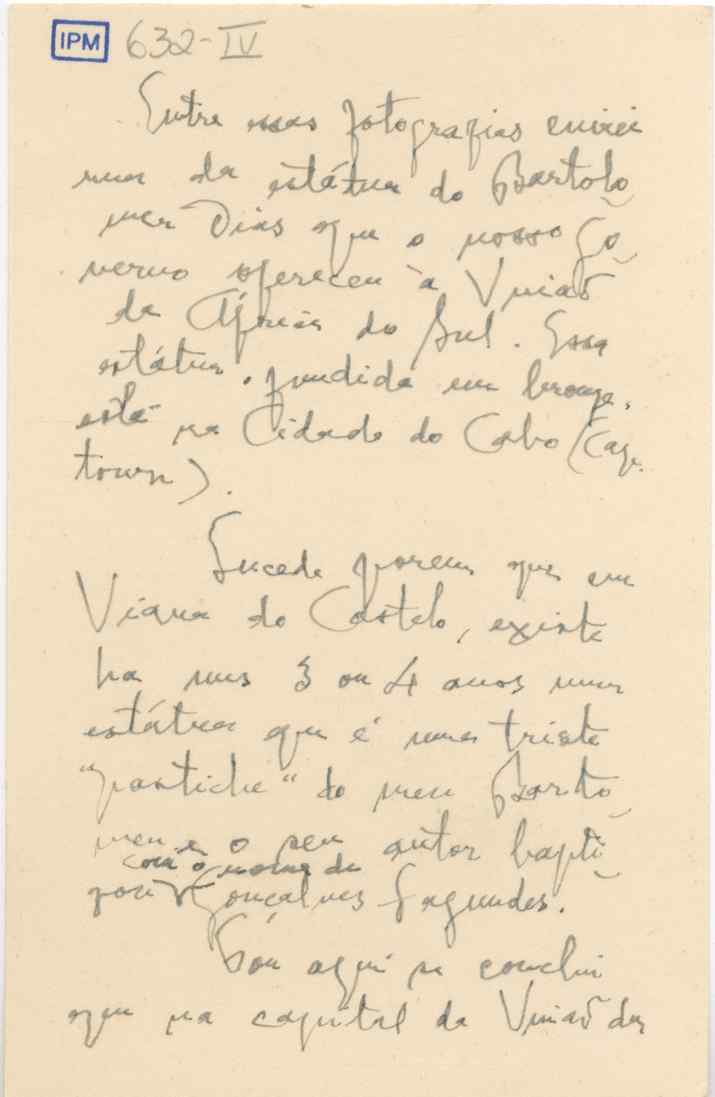 IPM 632-IV
Entre essas fotografias enviei
uma da estátua do Bartolo
meu Dias que o nosso Go
verno ofereceu à União
da África do Sul. Essa
estátua, fundida em bronze,
está na Cidade do Cabo (Cape
town).
Sucede porem que em
Viana do Castelo, existe
ha uns 3 ou 4 anos uma
estátua que é uma triste
"pastiche" do meu Barto
meu e o seu autor bapti
com o nome de
Gonçalves Fagundes.
aqui se conclui
que na capital da União da